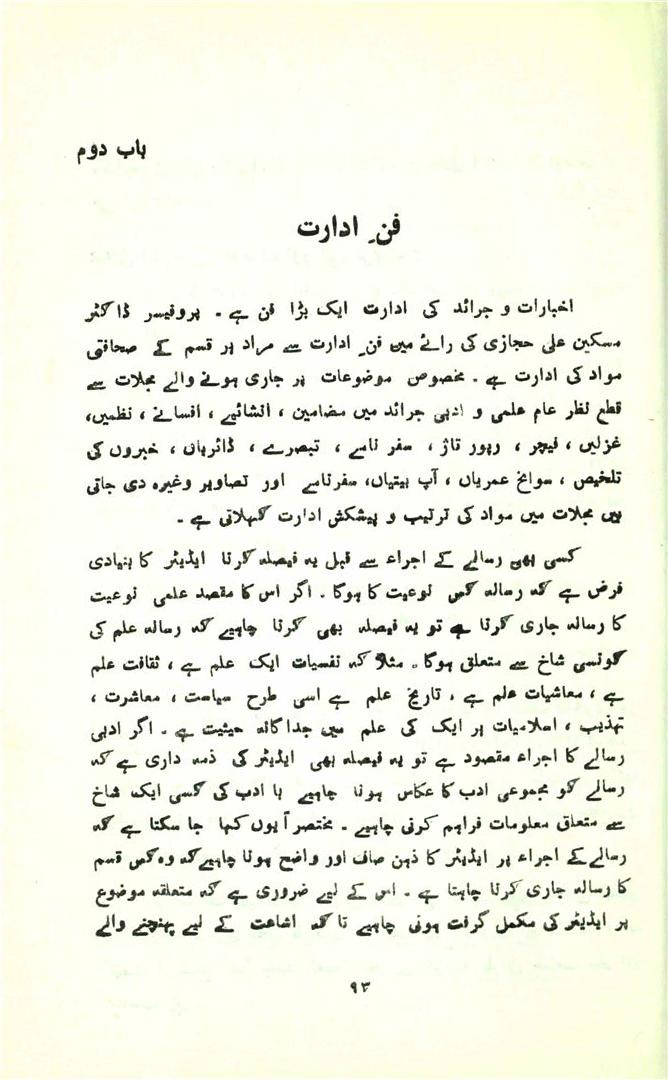 باب دوم
فن ِ ادارت
اخبارات و جرائد کی ادارت ایک بڑا فن ہے ۔ پروفیسر ڈاکٹر
مسکین علی حجازی کی رائے میں فن ِ ادارت سے مراد ہر قسم کے صحافتی
مواد کی ادارت ہے ۔ مخصوص موضوعات پر جاری ہونے والے مجلات سے
قطع نظر عام علمی و ادبی جرائد میں مضامین ، انشائیے ، افسانے ، نظمیں،
غزلیں ، فیچر ، رپور تاژ ، سفر نامے ، تبصرے ، ڈائریاں ، خبروں کی
تلخیص ، سوانح عمریاں ، آپ بیتیاں، سفرنامے اور تصاویر وغیرہ دی جاتی
ہیں مجلات میں مواد کی ترتیب و پیشکش ادارت کہلاتی ہے ۔
کسی بھی رسالے کے اجراء سے قبل یہ فیصلہ کرنا ایڈیٹر کا بنیادی
فرض ہے کہ رسالہ کس نوعیت کا ہوگا ۔ اگر اس کا مقصد علمی نوعیت
کا رسالہ جاری کرنا ہے تو یہ فیصلہ بھی کرنا چاہیے کہ رسالہ علم کی
کونسی شاخ سے متعلق ہوگا ۔ مثلاً کہ نفسیات ایک علم ہے ، ثقافت علم
ہے ، معاشیات علم ہے ، تاریخ علم ہے اسی طرح سیاست ، معاشرت ،
تہذیب ، اسلامیات ہر ایک کی علم میں جداگانہ حیثیت ہے ۔ اگر ادبی
رسالے کا اجراء مقصود ہے تو یہ فیصلہ بھی ایڈیٹر کی ذمہ داری ہے کہ
رسالے کو مجموعی ادب کا عکاس ہونا چاہیے یا ادب کی کسی ایک شاخ
سے متعلق معلومات فراہم کرنی چاہیے ۔ مختصراً یوں کہا جا سکتا ہے کہ
رسالے کے اجراء پر ایڈیٹر کا ذہن صاف اور واضح ہونا چاہیے کہ وہ کس قسم
کا رسالہ جاری کرنا چاہتا ہے ۔ اس کے لیے ضروری ہے کہ متعلقہ موضوع
پر ایڈیٹر کی مکمل گرفت ہونی چاہیے تا کہ اشاعت کے لیے پہنچنے والے
۹۳